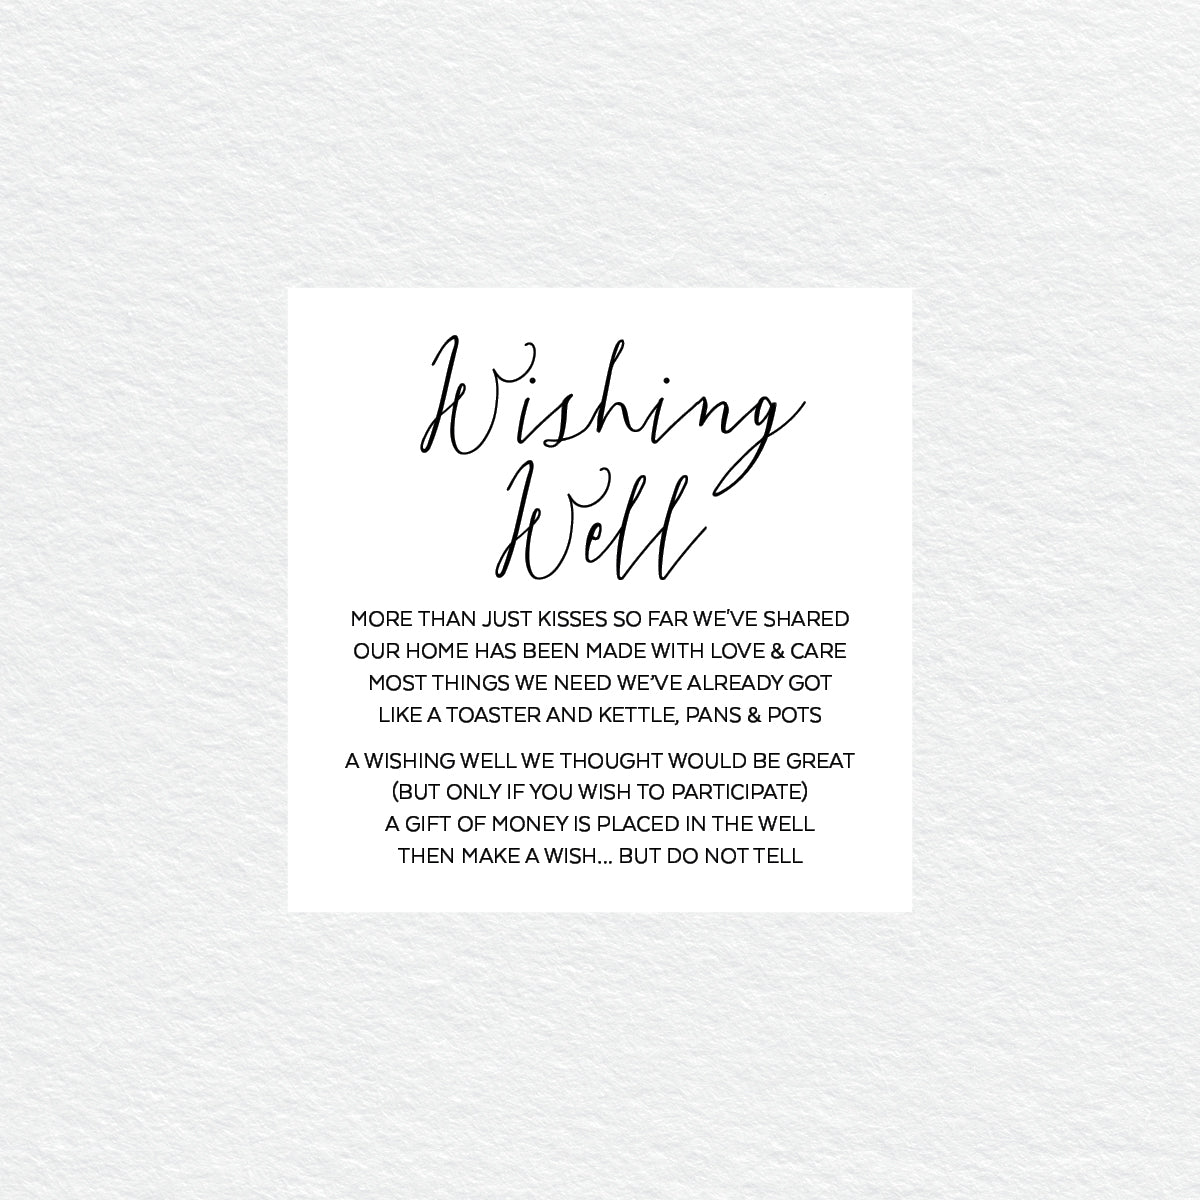 Wishing
Well
MORE THAN JUST KISSES SO FAR WE'VE SHARED
OUR HOME HAS BEEN MADE WITH LOVE & CARE
MOST THINGS WE NEED WE'VE ALREADY GOT
LIKE A TOASTER AND KETTLE, PANS & POTS
A WISHING WELL WE THOUGHT WOULD BE GREAT
(BUT ONLY IF YOU WISH TO PARTICIPATE)
A GIFT OF MONEY IS PLACED IN THE WELL
THEN MAKE A WISH... BUT DO NOT TELL